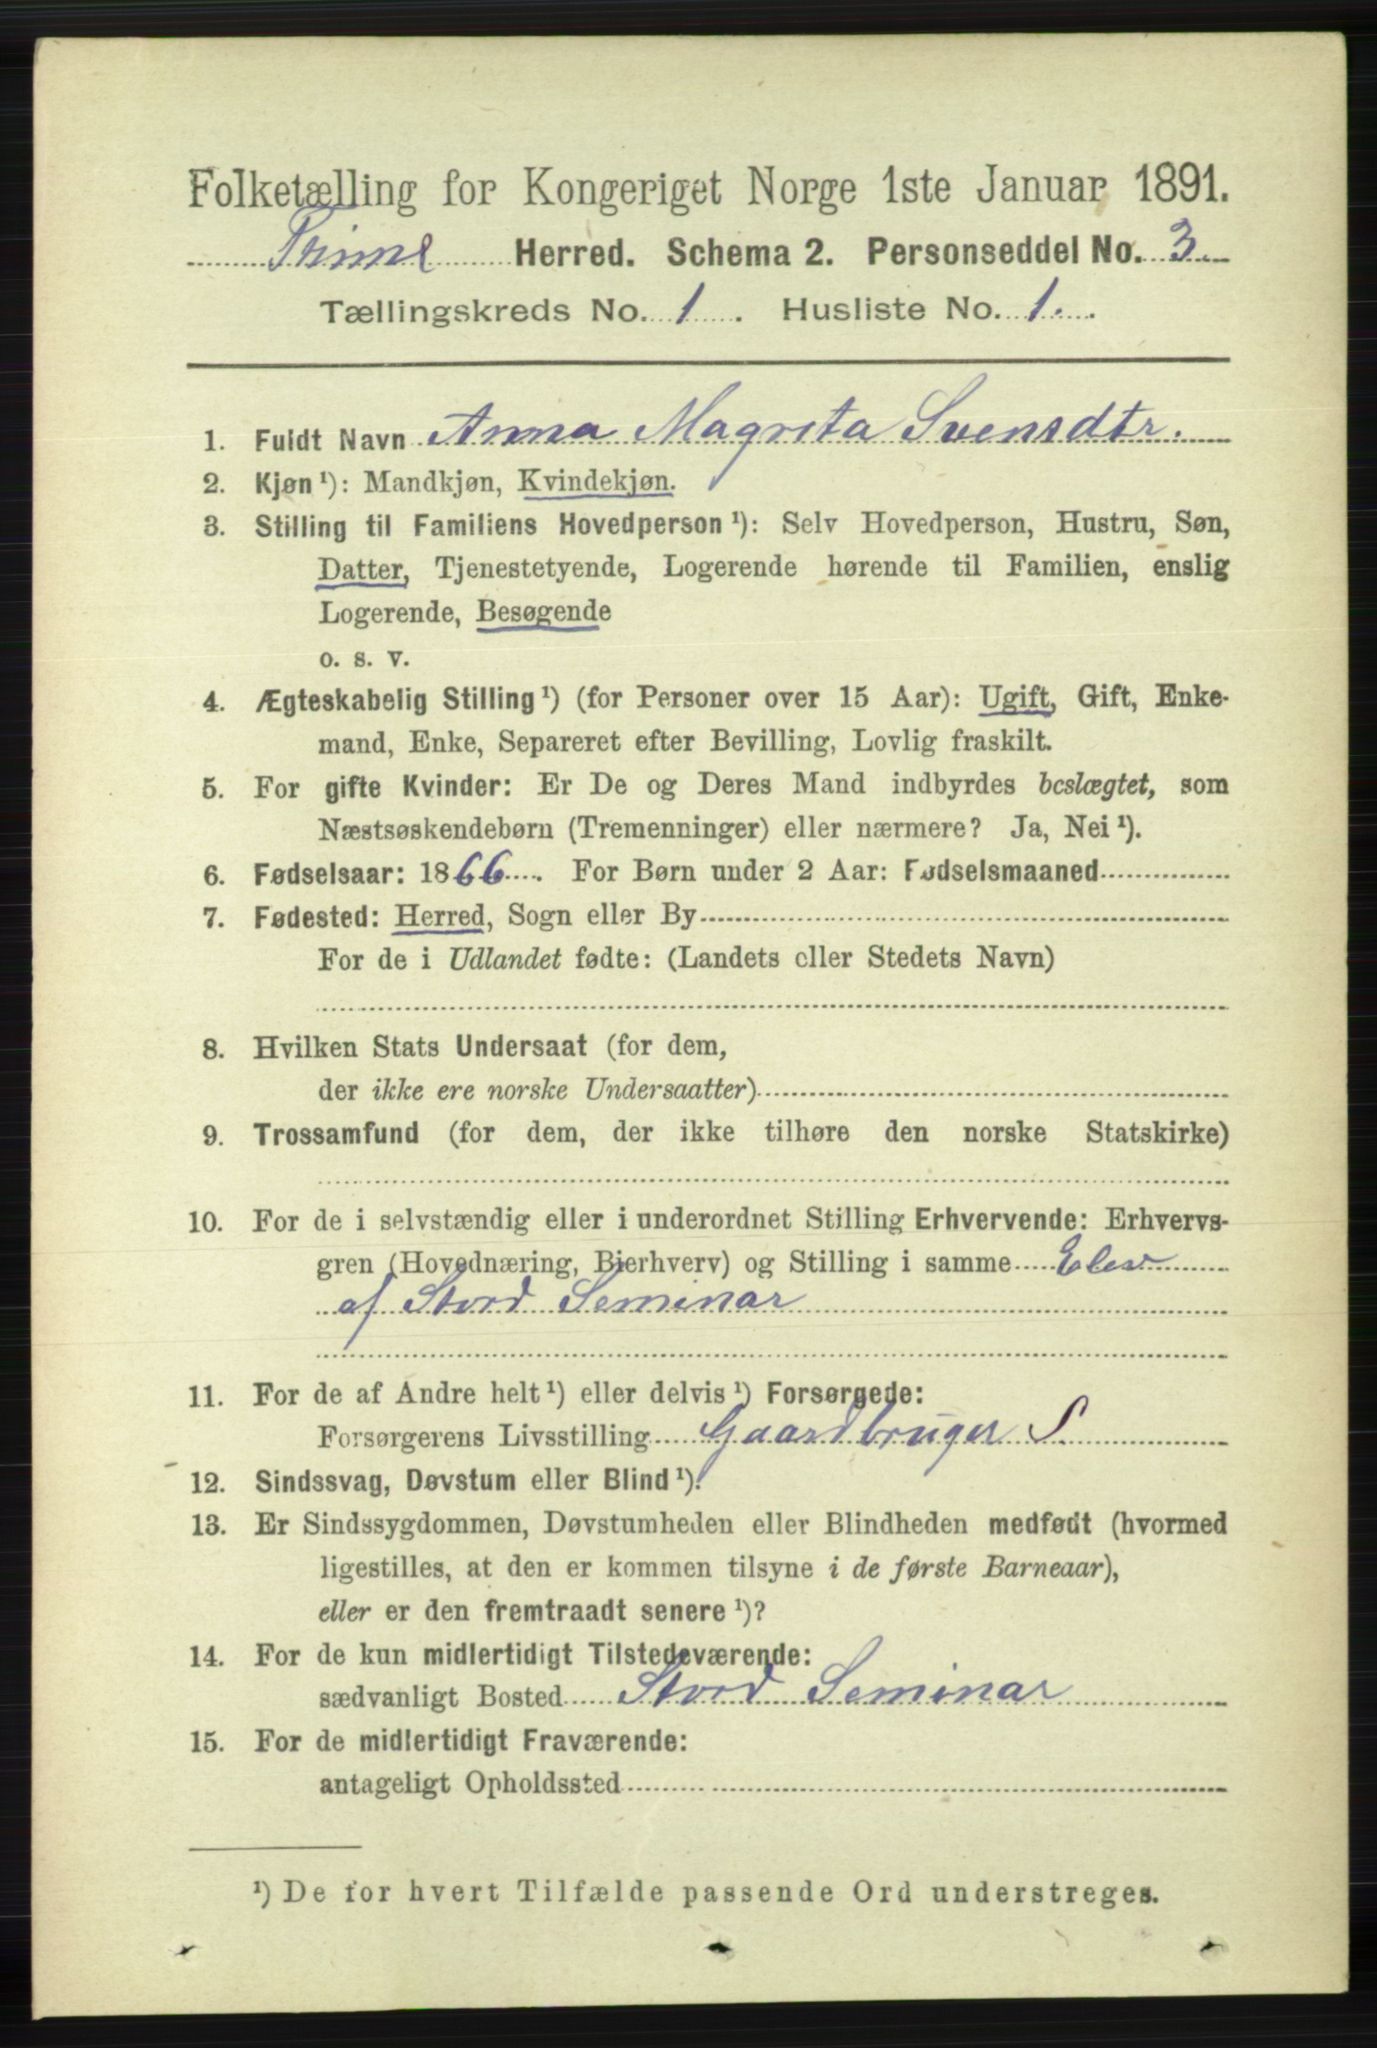 Folketælling for Kongeriget Norge 1ste Januar 1891.
Time Herred. Schema 2. Personseddel No. 3
Tællingskreds No. 1. Husliste No. 1.
1. Fuldt Navn Anna Magreta Svensdtr.
2. Kjøn ¹): Mandkjøn, Kvindekjøn.
3. Stilling til Familiens Hovedperson ¹): Selv Hovedperson, Hustru, Søn,
Datter, Tjenestetyende, Logerende hørende til Familien, enslig
Logerende, Besøgende
o. s. v.
4. Ægteskabelig Stilling ¹) (for Personer over 15 Aar): Ugift, Gift, Enke-
mand, Enke, Separeret efter Bevilling, Lovlig fraskilt.
5. For gifte Kvinder: Er De og Deres Mand indbyrdes beslægtet, som
Næstsøskendebørn (Tremenninger) eller nærmere? Ja, Nei ¹).
6. Fødselsaar: 1866. For Børn under 2 Aar: Fødselsmaaned
7. Fødested: Herred, Sogn eller By
For de i Udlandet fødte: (Landets eller Stedets Navn)
8. Hvilken Stats Undersaat (for dem,
der ikke ere norske Undersaatter)
9. Trossamfund (for dem, der ikke tilhøre den norske Statskirke)
10. For de i selvstændig eller i underordnet Stilling Erhvervende: Erhvervs-
gren (Hovednæring, Bierhverv) og Stilling i samme Elev
af Stord Seminar
11. For de af Andre helt ¹) eller delvis ¹) Forsørgede:
Forsørgerens Livsstilling Gaardbruger S.
12. Sindssvag, Døvstum eller Blind ¹).
13. Er Sindssygdommen, Døvstumheden eller Blindheden medfødt (hvormed
ligestilles, at den er kommen tilsyne i de første Barneaar),
eller er den fremtraadt senere ¹)?
14. For de kun midlertidigt Tilstedeværende:
sædvanligt Bosted Stord Seminar
15. For de midlertidigt Fraværende:
antageligt Opholdssted
¹) De for hvert Tilfælde passende Ord understreges.